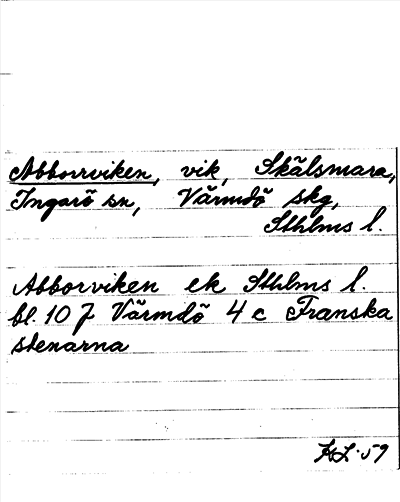 Abborrviken, vik, Skälsmara,
Ingarö sn, Värmdö skg,
Sthlms l.
Abborviken ek Sthlms l.
bl. 10 J Värmdö 4 c Franska
stenarna
KL-59